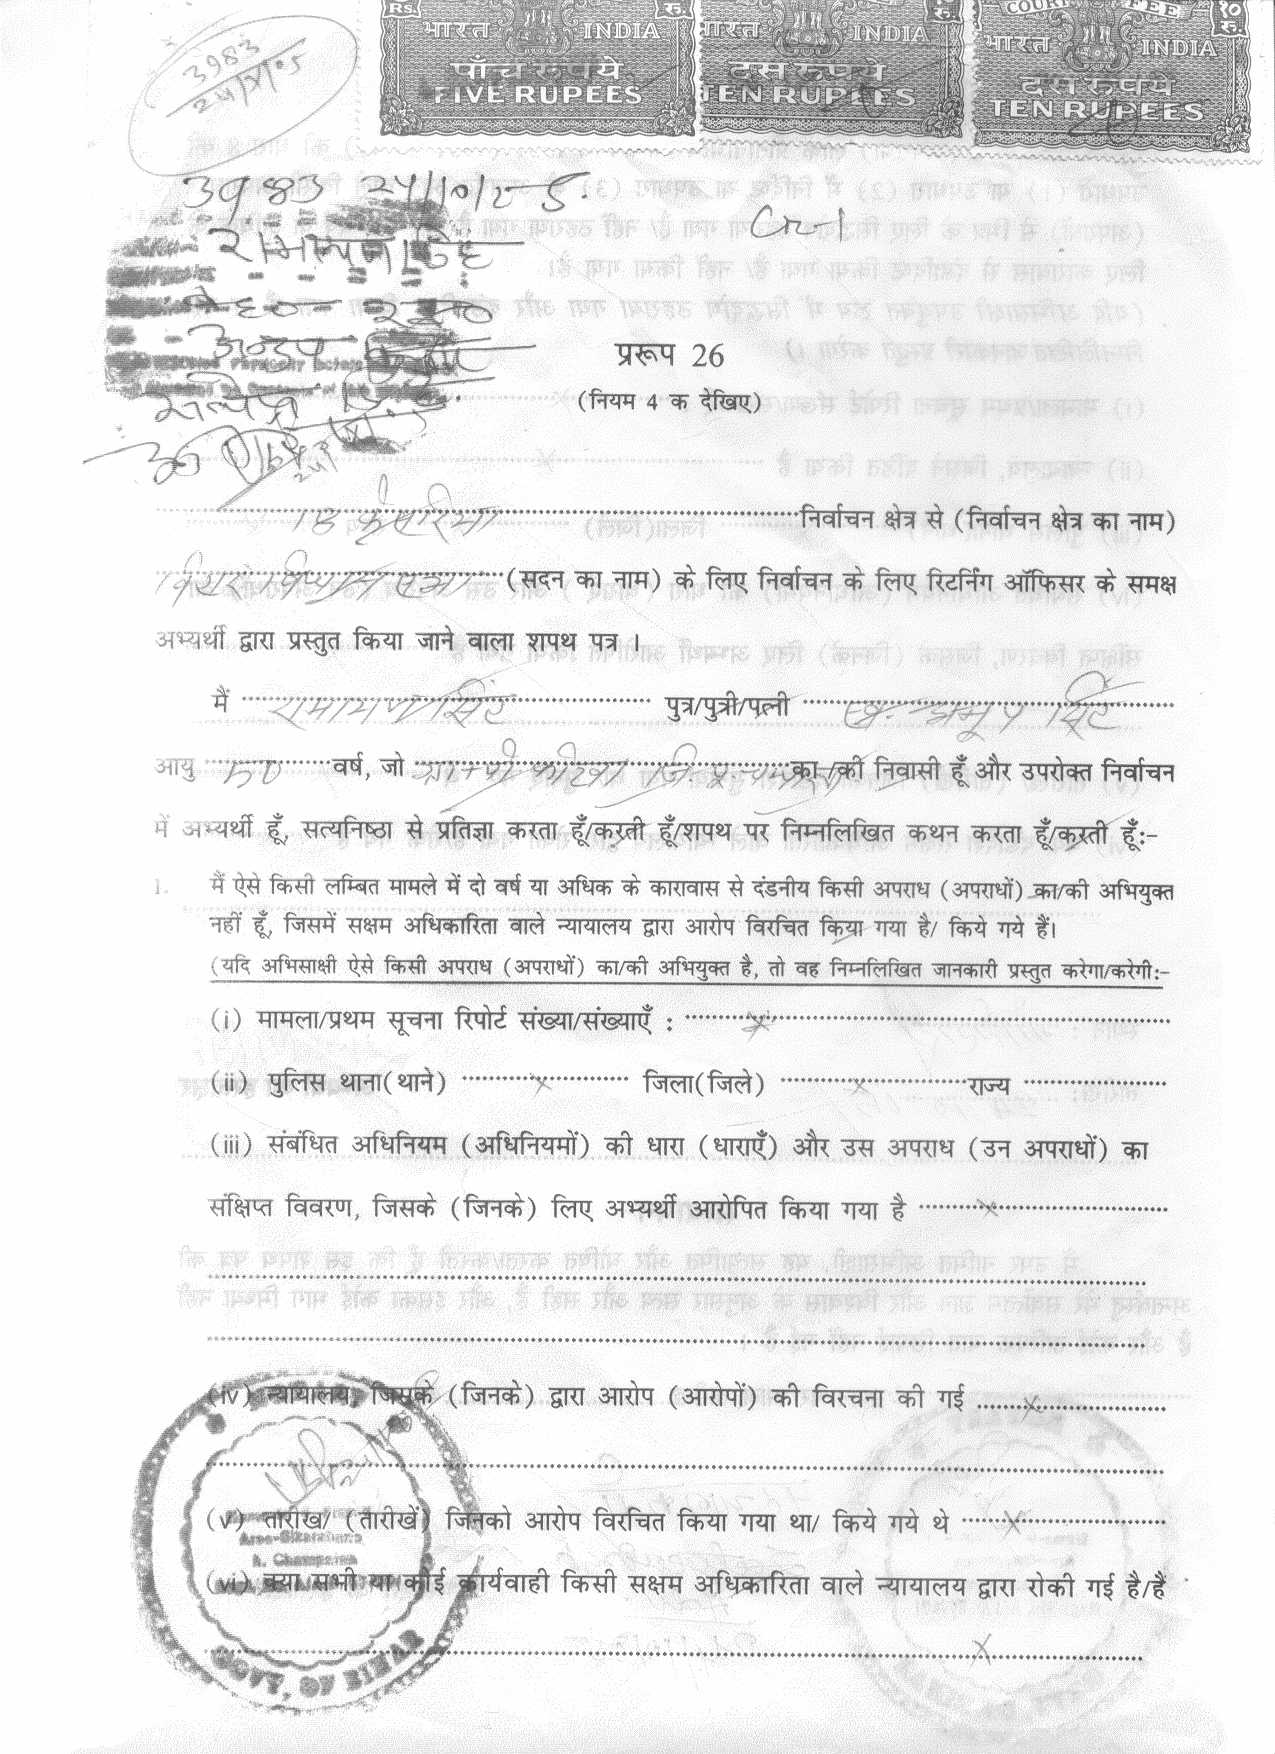 Rs. रु. रु. COURT FEE १० रु.
भारत INDIA भारत INDIA भारत INDIA
पाँच रुपये दस रुपये दस रुपये
FIVE RUPEES TEN RUPEES TEN RUPEES
3983
3983
प्ररूप 26
(नियम 4 क देखिए)
18 केसरिया निर्वाचन क्षेत्र से (निर्वाचन क्षेत्र का नाम)
विधान सभा (सदन का नाम) के लिए निर्वाचन के लिए रिटर्निंग ऑफिसर के समक्ष
अभ्यर्थी द्वारा प्रस्तुत किया जाने वाला शपथ पत्र ।
मैं रामायण सिंह पुत्र/पुत्री/पत्नी सिंह
आयु वर्ष, जो का/की निवासी हूँ और उपरोक्त निर्वाचन
में अभ्यर्थी हूँ, सत्यनिष्ठा से प्रतिज्ञा करता हूँ/करती हूँ/शपथ पर निम्नलिखित कथन करता हूँ/करती हूँ:-
1. मैं ऐसे किसी लम्बित मामले में दो वर्ष या अधिक के कारावास से दंडनीय किसी अपराध (अपराधों) का/की अभियुक्त
नहीं हूँ, जिसमें सक्षम अधिकारिता वाले न्यायालय द्वारा आरोप विरचित किया गया है/ किये गये हैं।
(यदि अभिसाक्षी ऐसे किसी अपराध (अपराधों) का/की अभियुक्त है, तो वह निम्नलिखित जानकारी प्रस्तुत करेगा/करेगी:-
(i) मामला/प्रथम सूचना रिपोर्ट संख्या/संख्याएँ : x
(ii) पुलिस थाना(थाने) x जिला(जिले) x राज्य
(iii) संबंधित अधिनियम (अधिनियमों) की धारा (धाराएँ) और उस अपराध (उन अपराधों) का
संक्षिप्त विवरण, जिसके (जिनके) लिए अभ्यर्थी आरोपित किया गया है x
(iv) न्यायालय, जिसके (जिनके) द्वारा आरोप (आरोपों) की विरचना की गई x
(v) तारीख/ (तारीखें) जिनको आरोप विरचित किया गया था/ किये गये थे x
(vi) क्या सभी या कोई कार्यवाही किसी सक्षम अधिकारिता वाले न्यायालय द्वारा रोकी गई है/हैं
x
GOVT. OF BIHAR